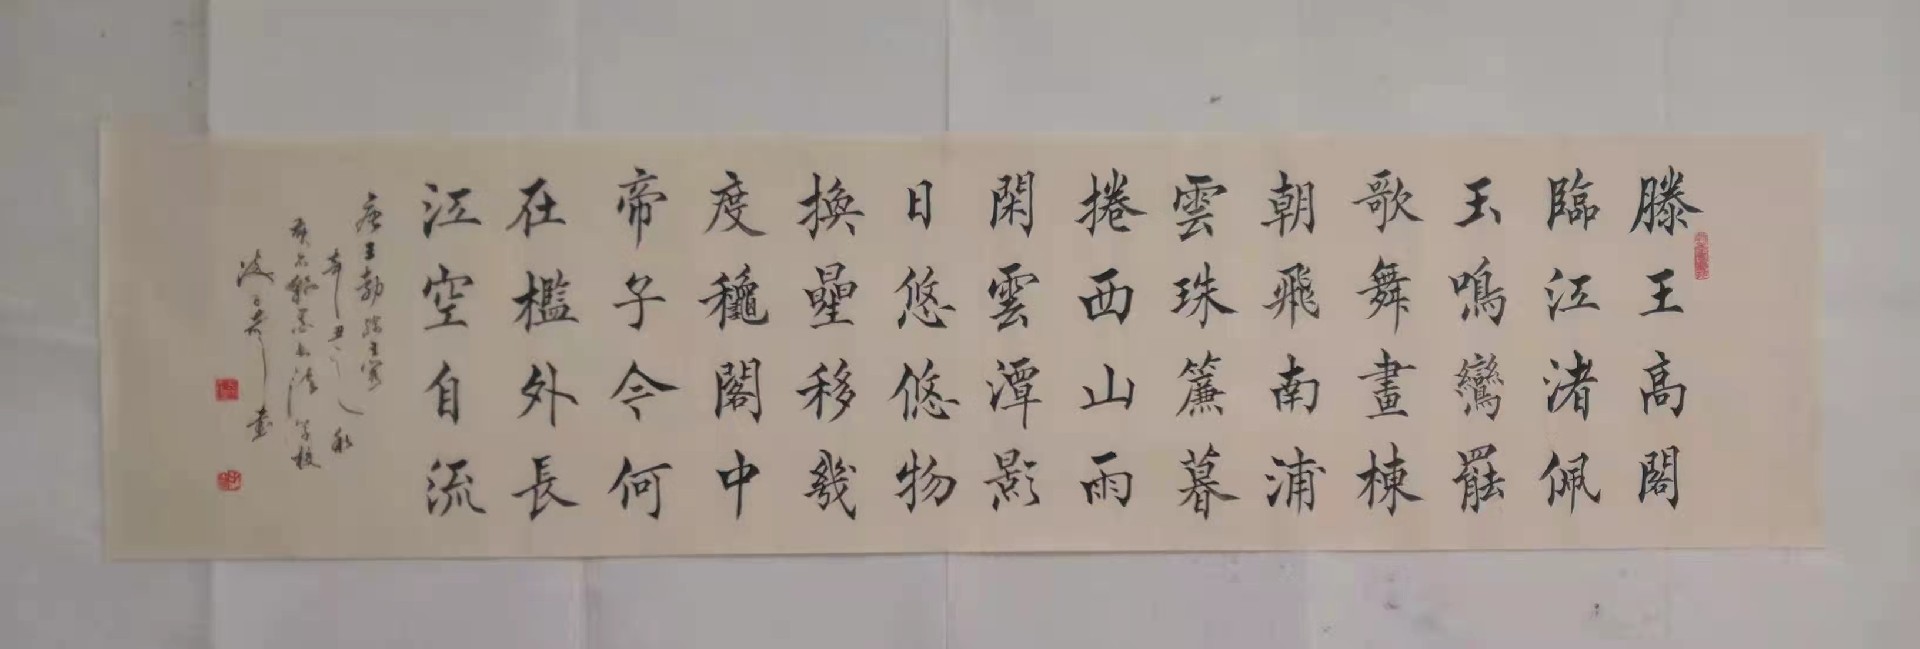 滕王高閣
臨江渚佩
玉鳴鸞罷
歌舞畫棟
朝飛南浦
雲珠簾暮
捲西山雨
閑雲潭影
日悠悠物
換星移幾
度穐閣中
帝子今何
在檻外長
江空自流
唐王勃滕王閣
辛丑之秋
書